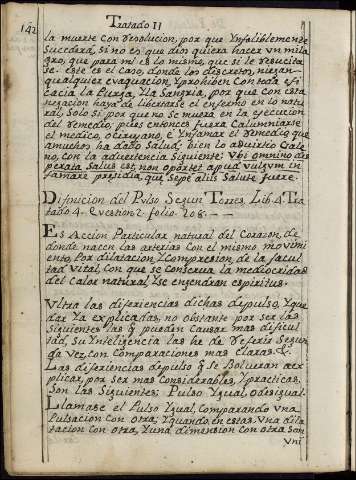 142
Tratado II
la muerte con resolucion, por que Ynfaliblemente
Succedera, si no es que Dios quiera hacer un mila
gro, que para mi es lo mismo, que si le resucita
se. este es el caso, donde los discretos, niegan
qualquier evaquacion, Y prohiben con toda efi
cacia la Purga, Y la Sangria, por que con esta
negacion haya de libertarse el enfermo en lo natu
ral, Solo si por que no Se muera en la execucion
del remedio, pues entonces fuera Calumniarse
el medico, o Cirujano, e Ynfamar el remedio que
a muchos ha dado Salud; bien lo advirtio Gale
no, con la advertencia Siguiente: Ubi omnino des
perata Salus est, non oportet apud vulgum in
famare presidia, que Sepe aliis Salute fuere.
Difinicion del Pulso Segun Torres. Lib. 4. Tra
tado 4. Question 2 folio 208. - -
Es Accion Particular natural del Corazon, de
donde nacen las arterias con el mismo movimi
ento, Por dilatacion Y Compresion, de la facul
tad Vital, Con que se Conserva la mediocridad
del Calor natural, Y Se engendran espiritus.
Ultra las diferiencias dichas de pulso, Y que
dar Ya explicadas, no obstante por ser las
Siguientes las q pueden Causar mas dificul
tad, Su Ynteligencia las he de referir Segun
da Vez, con Comparaciones mas claras. &.
Las diferiencias de pulso q Se Bolueran a ex
plicar, por Ser mas Considerables, Y practicas,
Son las Siguientes: Pulso Ygual, o desigual.
Llamase el Pulso Ygual, comparando Vna
Pulsacion con Otra; Y quando en estas, Vna dila
tacion con Otra, Y una dimension con otra Son
Vni